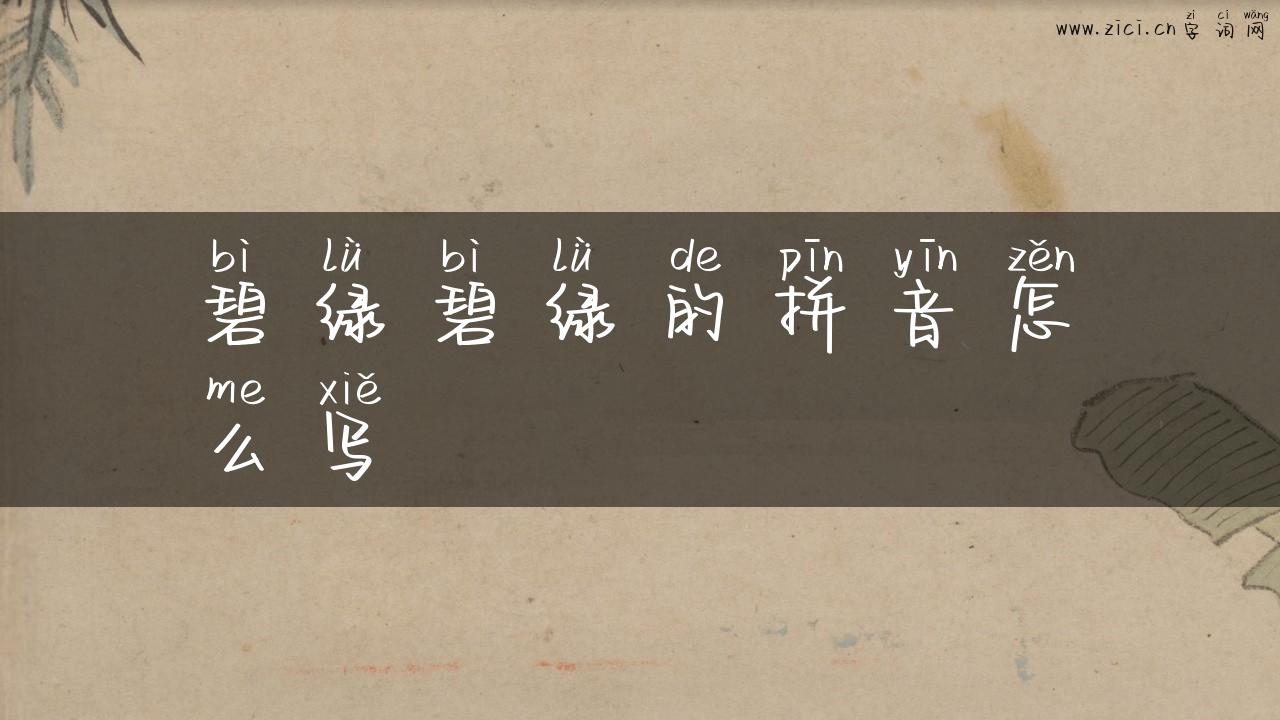 zì cí wǎng
www.zici.cn 字词网
bì lǜ bì lǜ de pīn yīn zěn
碧绿碧绿的拼音怎
me xiě
么写